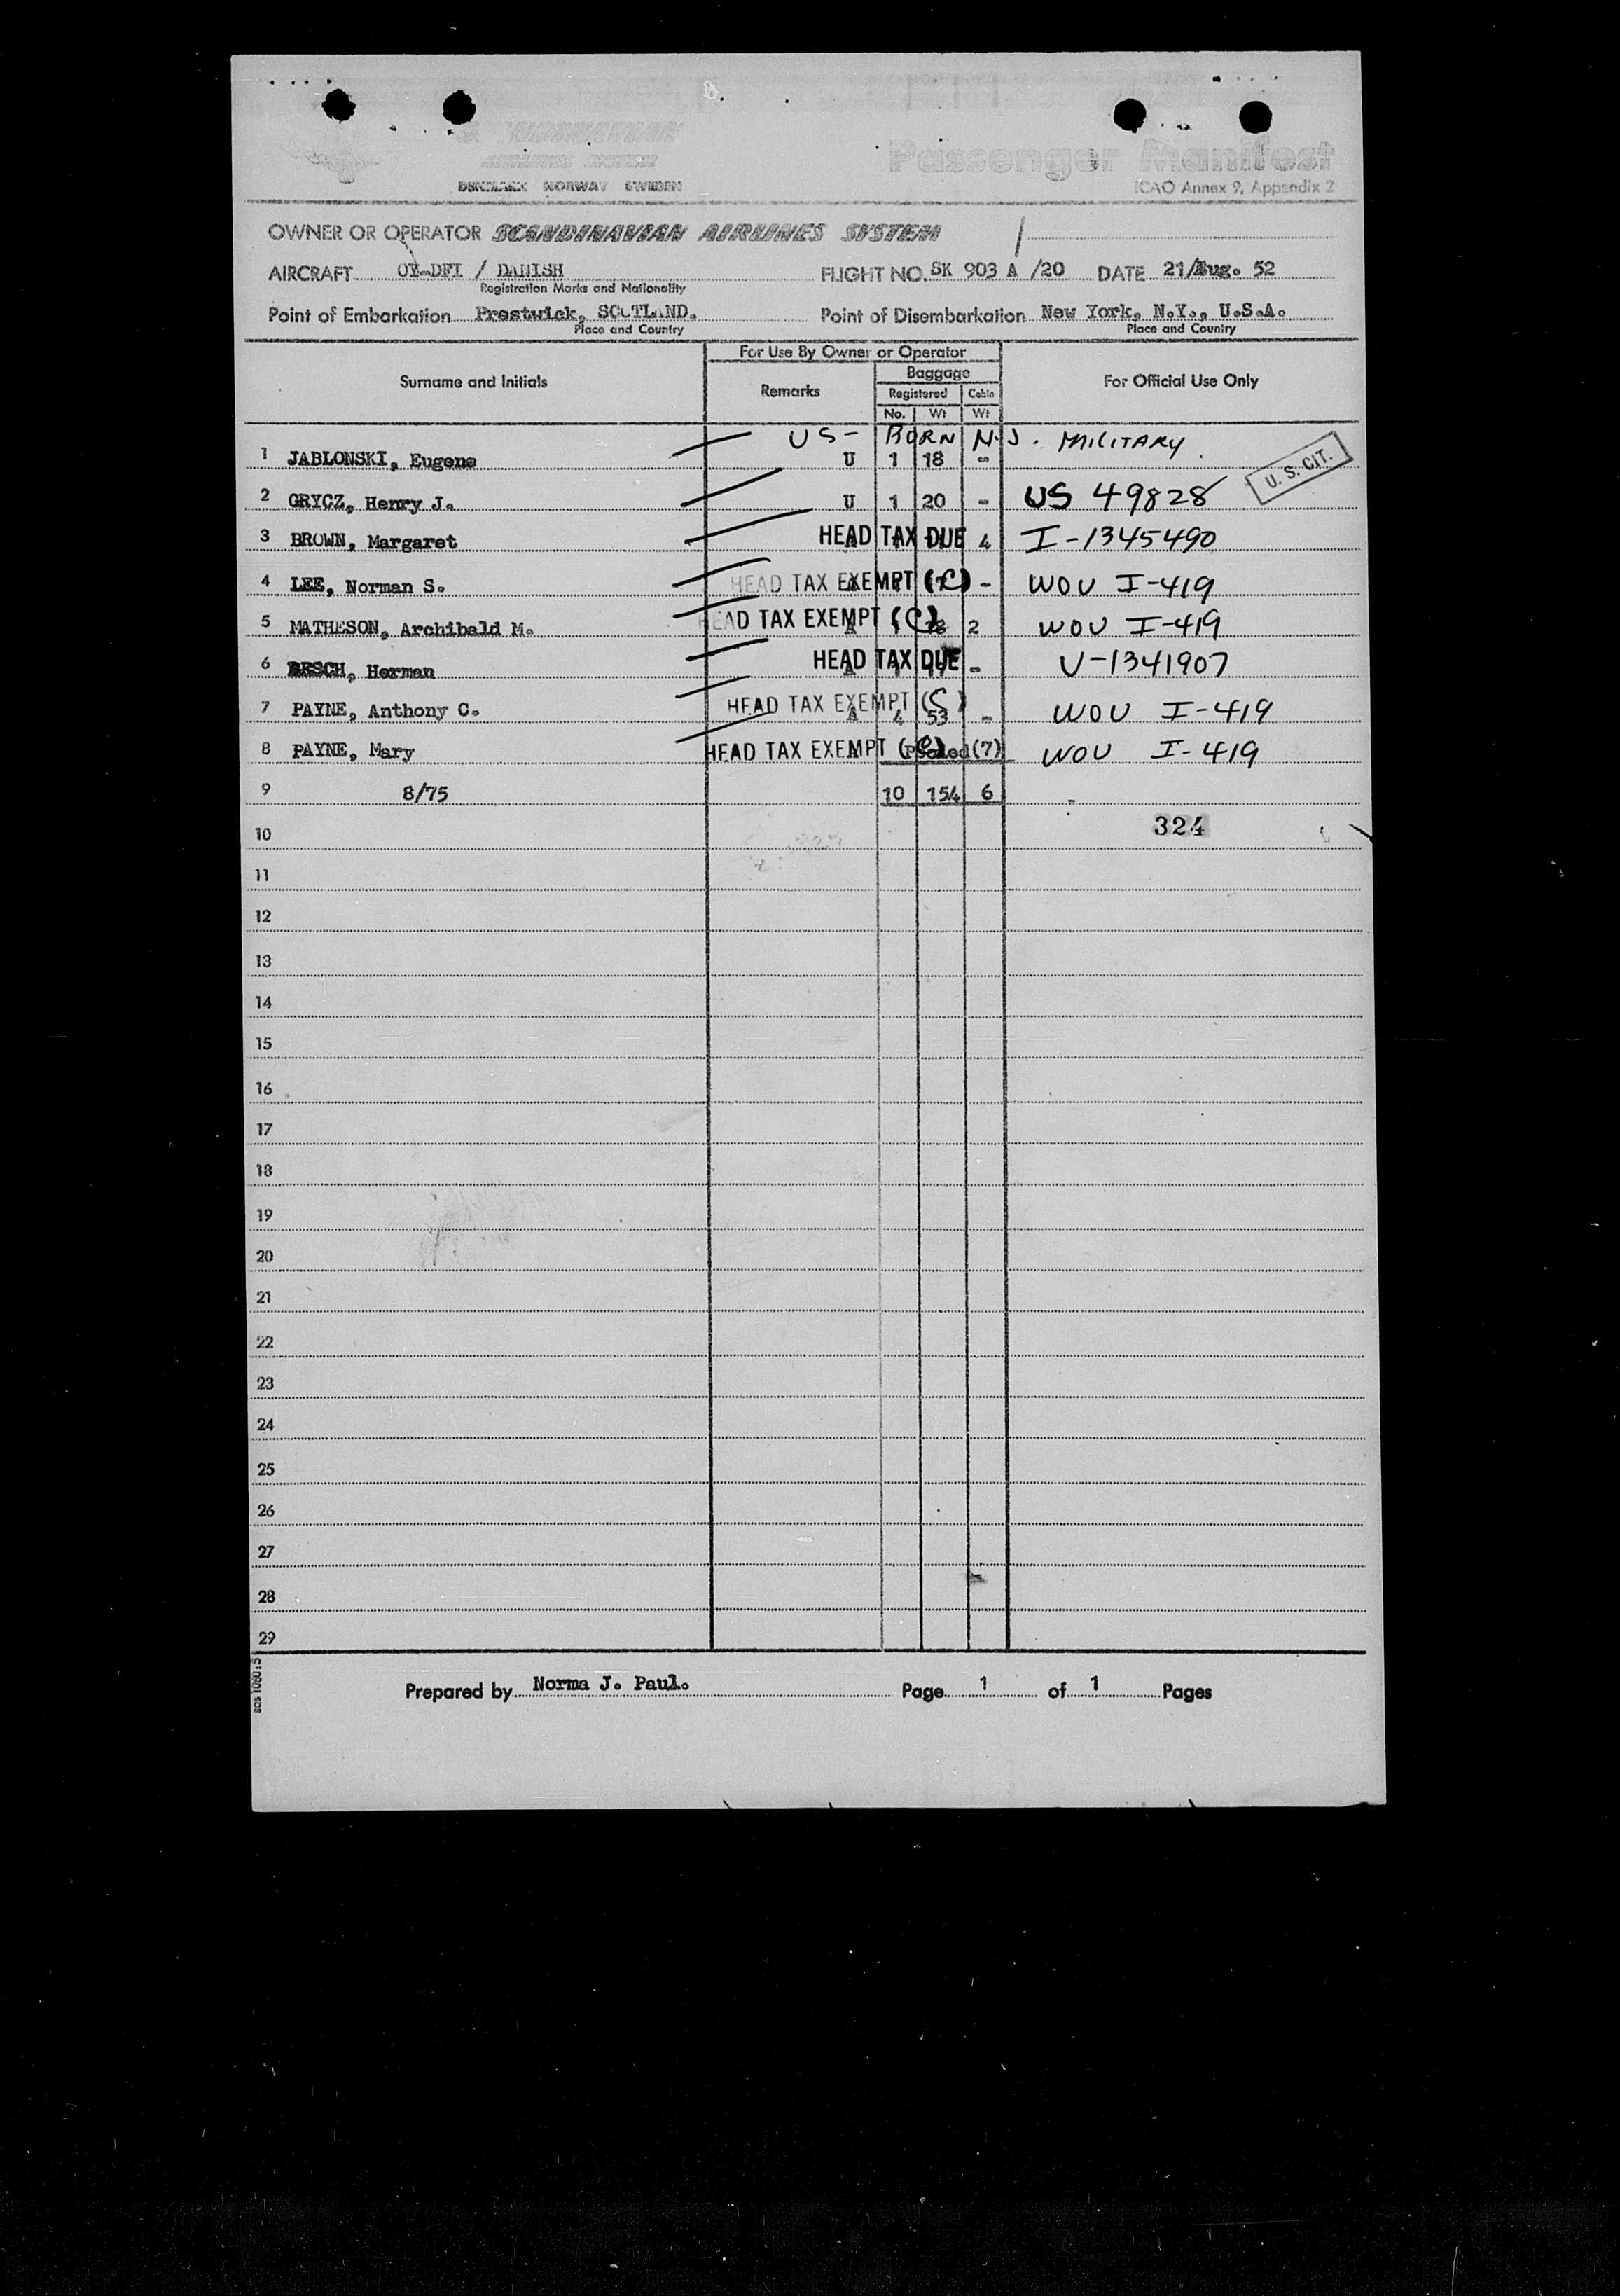 Passenger Manifest
DENMARK NORWAY SWEDEN
ICAO Annex 9, Appendix 2
OWNER OR OPERATOR SCANDINAVIAN AIRLINES SYSTEM
AIRCRAFT OY-DFI / DANISH FLIGHT NO. SK 903 A /20 DATE 21/Aug. 52
Registration Marks and Nationality
Point of Embarkation Prestwick, SCOTLAND. Point of Disembarkation New York, N.Y., U.S.A.
Place and Country Place and Country
For Use By Owner or Operator
Surname and Initials Remarks Baggage For Official Use Only
Registered Cabin
No. Wt Wt
US- BORN N.J. MILITARY
1 JABLONSKI, Eugene U 1 18 -
U. S. CIT.
2 GRYCZ, Henry J. U 1 20 - US 49828
3 BROWN, Margaret HEAD TAX DUE 4 I-1345490
4 LEE, Norman S. HEAD TAX EXEMPT (C) - WOU I-419
5 MATHESON, Archibald M. HEAD TAX EXEMPT (C) 2 WOU I-419
6 Herman HEAD TAX DUE - V-1341907
7 PAYNE, Anthony C. HEAD TAX EXEMPT (C) A 4 53 - WOU I-419
8 PAYNE, Mary HEAD TAX EXEMPT (C) Pooled (7) WOU I-419
9 8/75 10 154 6
10 324
11
12
13
14
15
16
17
18
19
20
21
22
23
24
25
26
27
28
29
sas 10601:5
Prepared by Norma J. Paul. Page 1 of 1 Pages